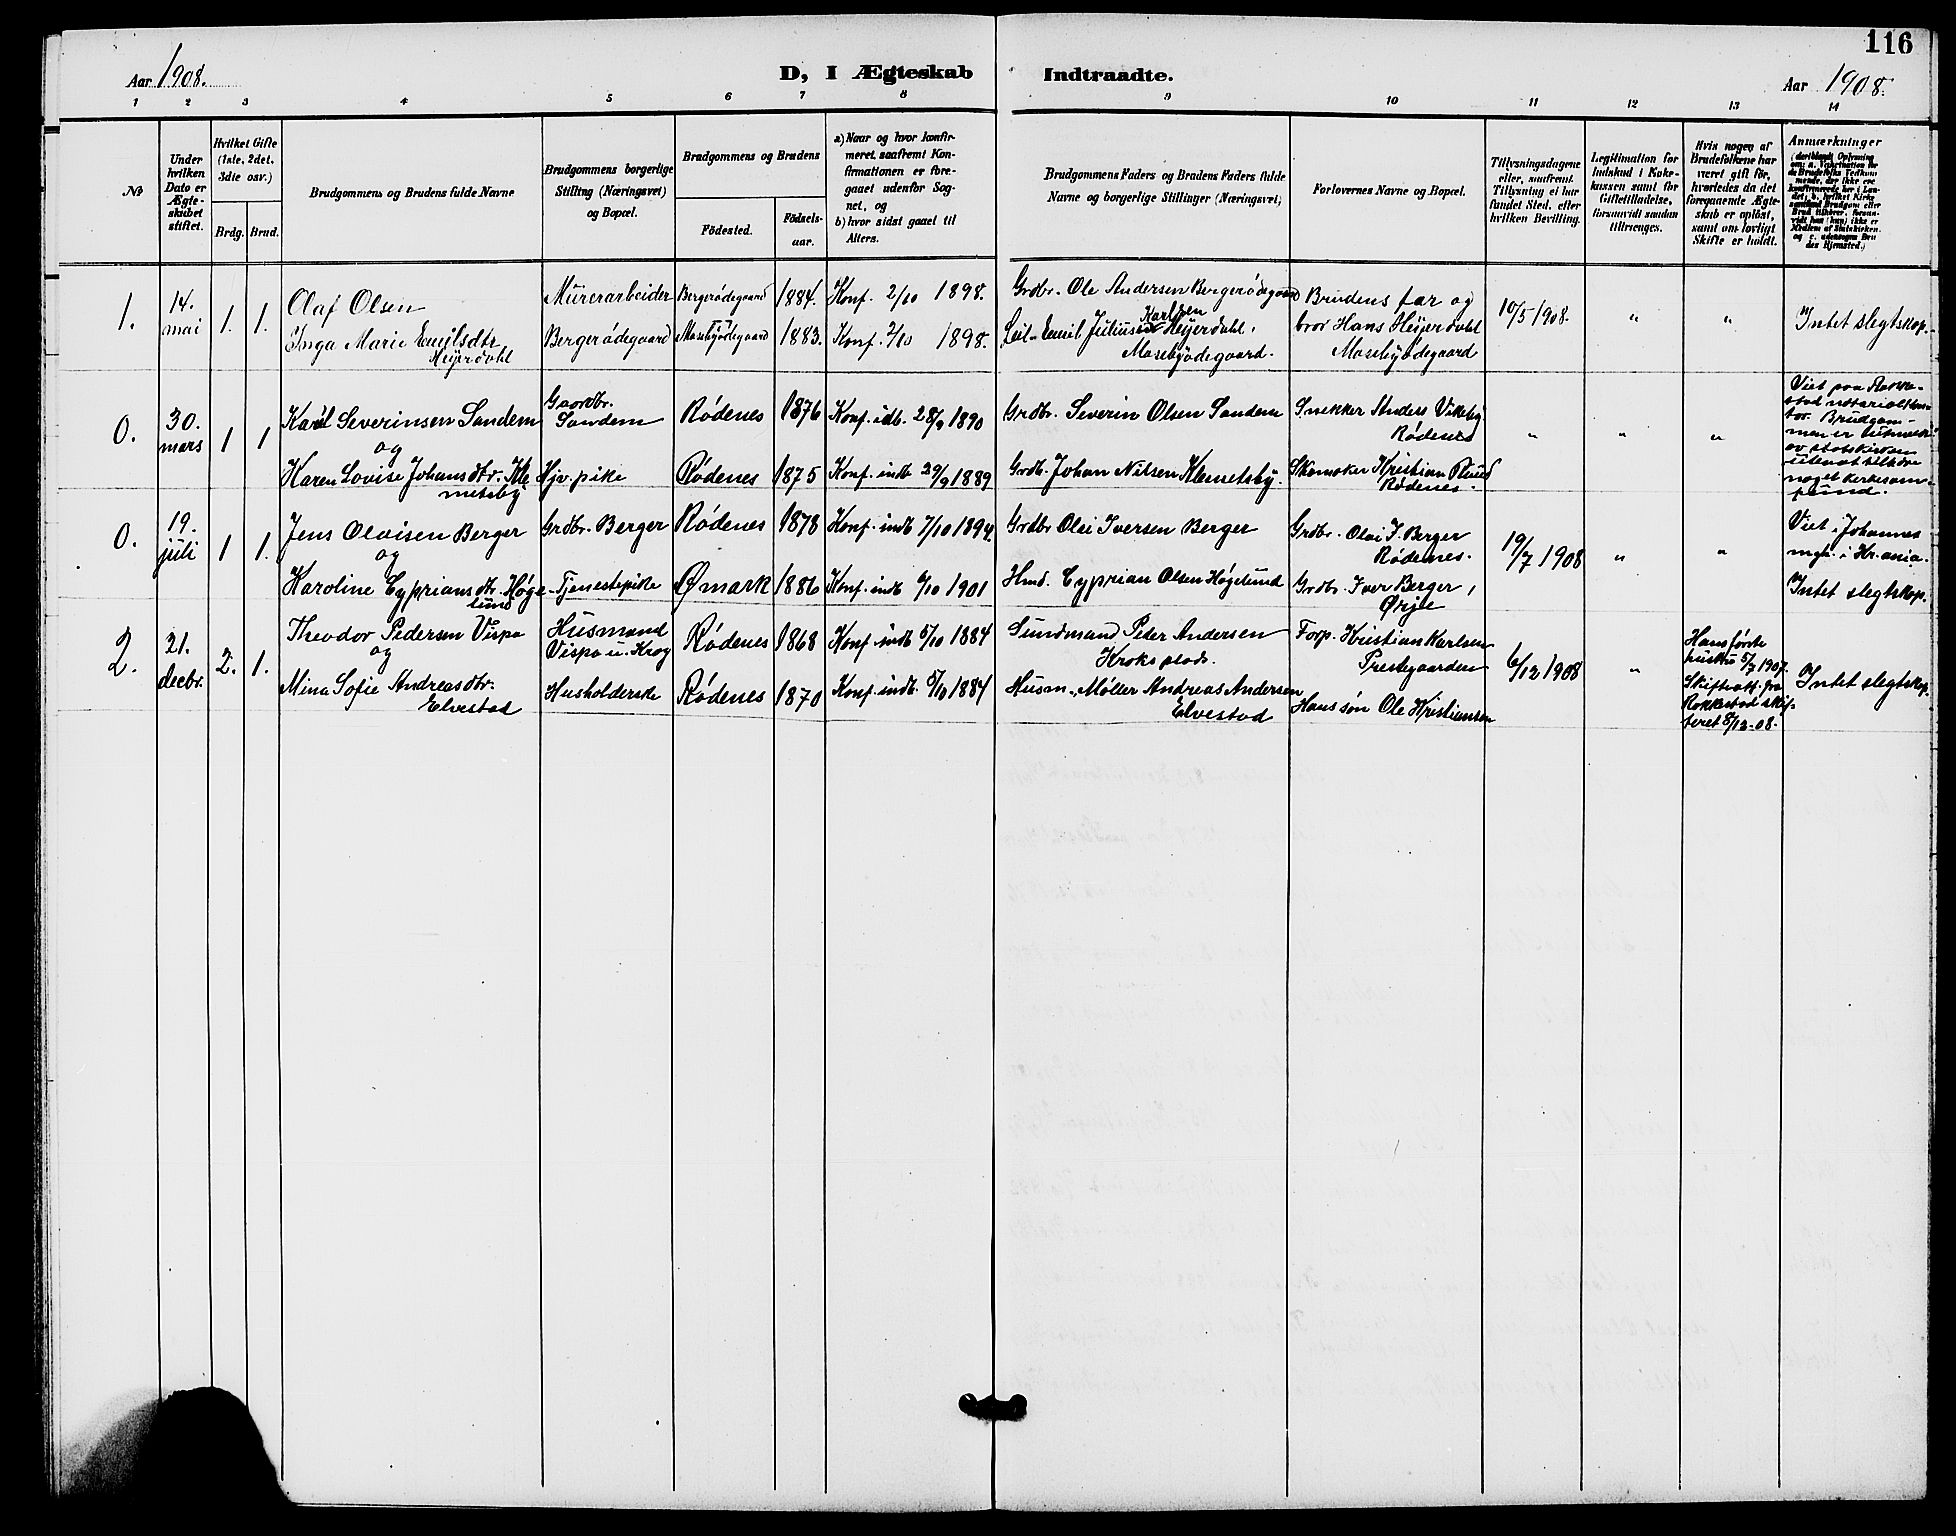 116
Aar 1908.
D, I Ægteskab Indtraadte.
Aar 1908.
1 2 3 4 5 6 7 8 9 10 11 12 13 14
№
Under
hvilken
Dato er
Ægte-
skabet
stiftet.
Hvilket Gifte
(1ste, 2det,
3die osv.)
Brdg. Brud.
Brudgommens og Brudens fulde Navne
Brudgommens borgerlige
Stilling (Næringsvei)
og Bopæl.
Brudgommens og Brudens
Födested.
Födsels-
aar.
a) Naar og hvor konfir-
meret, saafremt Kon-
firmationen er fore-
gaaet udenfor Sog-
net, og
b) hvor sidst gaaet til
Alters.
Brudgommens Faders og Brudens Faders fulde
Navne og borgerlige Stillinger (Næringsvei)
Forlovernes Navne og Bopæl.
Tillysningsdagene
eller, saafremt
Tillysning ei har
fundet Sted, efter
hvilken Bevilling.
Legitimation for
Indskud i Enke-
kassen samt for
Giftetilladelse,
forsaavidt saadan
tiltrænges.
Hvis nogen af
Brudefolkene har
været gift för,
hvorledes da det
foregaaende Ægte-
skab er oplöst,
samt om lovligt
Skifte er holdt.
Anmærkninger
(deriblandt Oplysning
om: a. Vaccination for
de Brudefolks Vedkom-
mende, der ikke ere
konfirmerede her i Lan-
det, b. hvilket Kirke-
samfund Brudgom eller
Brud tilhører, forsaa-
vidt han (hun) ikke er
Medlem af Statskirken,
og c. udensogns Bru-
des Hjemsted.)
1. 14. mai 1. 1.
Olaf Olsen
Inga Marie Emilsdtr
Heijerdahl
Murerarbeider
Bergerødegaard
Bergerødegaard 1884. Konf. 2/10 1898.
Mosebyødegaard 1883. Konf. 2/10 1898.
Grdbr. Ole Andersen Bergerødegaard
Karlsen
Leil. Emil Juliussen Heijerdahl,
Mosebyødegaard.
Brudens far og
bror Hans Heijerdahl
Mosebyødegaard
10/5 1908. " "
Intet slegtskap.
0. 30. mars 1 1
Karl Severinsen Sandem
og
Karen Lovise Johansdtr. Kle
metsby
Gaardbr.
Sandem
Hjv. pike
Rødenes 1876 Konf. idb. 28/9 1890
Rødenes 1875 Konf. indb 29/9 1889
Grdbr. Severin Olsen Sandem
Grdb. Johan Nilsen Klemetsby.
Snekker Anders Vikeby
Rødenes
Skomaker Kristian Rud
Rødenes.
" " "
Viet paa Rakke-
stad notarialkon-
tor. Brudgom-
men er utmeldt
av statskirken
uten at tilhøre
noget kirkesam-
fund.
0. 19. juli 1 1.
Jens Olaisen Berger
og
Karoline Cypriansdtr. Høge
lund
Grdbr. Berger
Tjenestepike
Rødenes 1878 Konf. indb 7/10 1894.
Ømark 1886 Konf. indb 6/10 1901
Grdbr Olai Iversen Berger
Hmd. Cyprian Olsen Høgelund
Grdbr. Olai I. Berger
Rødenes.
Grdbr. Iver Berger,
Ørje
19/7 1908 " "
Viet i Johannes
mgh. i Kr.ania.
Intet slegtskap.
2. 21. decbr. 2. 1.
Theodor Pedersen Vispo
og
Mina Sofie Andreasdtr.
Elvestad
Husmand
Vispo u. Krog
Husholderske
Rødenes 1868 Konf. indb 5/10 1884
Rødenes 1870 Konf. indb. 5/10 1884
Sundmand Peter Andersen
Kroksplads.
Husm., Møller Andreas Andersen
Elvestad
Forp. Kristian Karlsen
Prestegaarden
Hans søn Ole Kristiansen
6/12 1908 "
Hans første
hustru 5/3 1907.
Skifteatt. fra
Rakkestad skif-
teret 8/12-08.
Intet slegtskap.